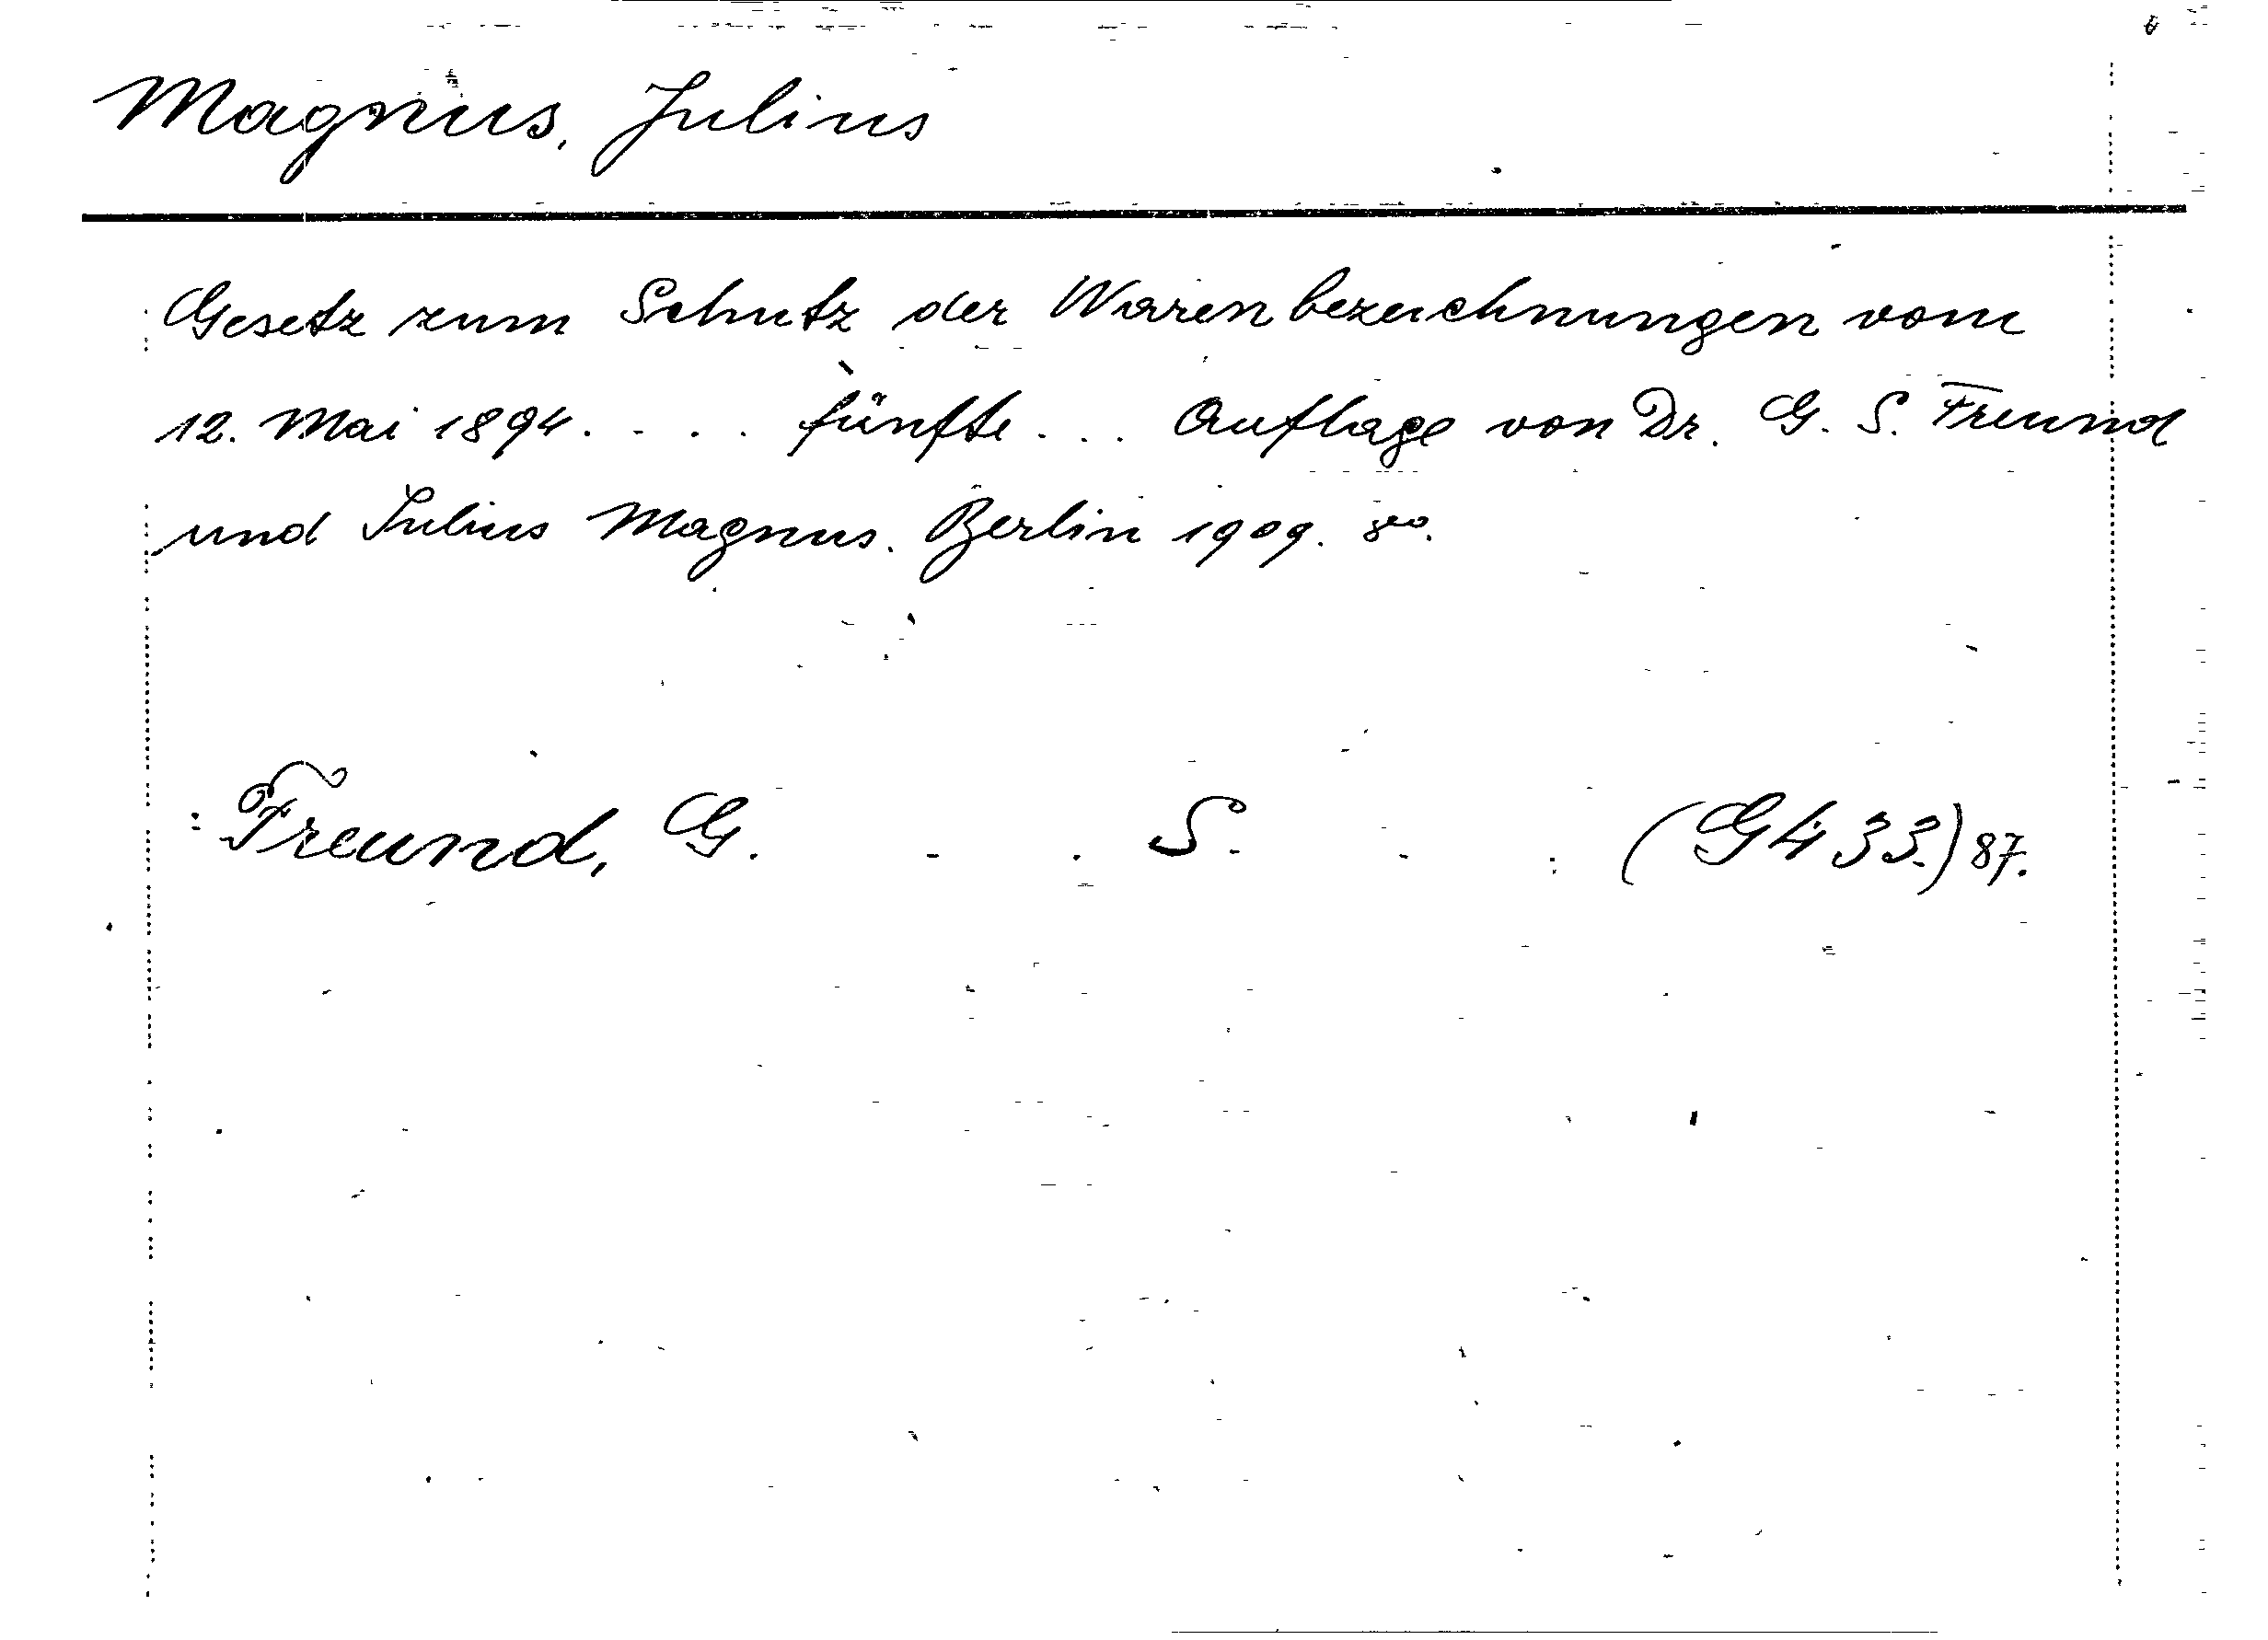 Magnus, Julius
Gesetz zum Schutz der Warenbezeichnungen vom
12. Mai 1894. . . . fünfte . . . Auflage von Dr. G. S. Freund
und Julius Magnus. Berlin 1909. 8vo.
Freund, G. - . S. - . : (G 433.) 87.